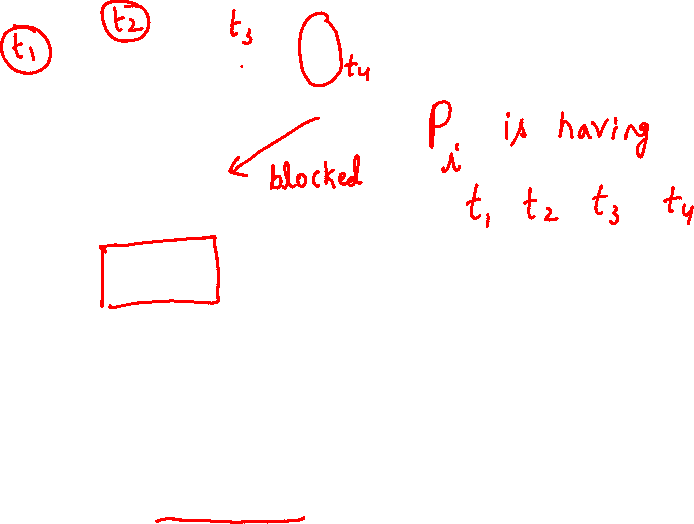 t1 t2 t3
t4
blocked
Pi is having
t1 t2 t3 t4